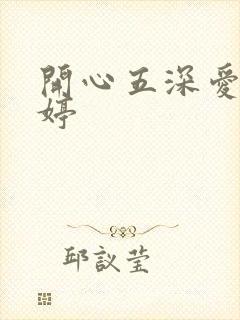 開心五深愛
婷
邱議瑩